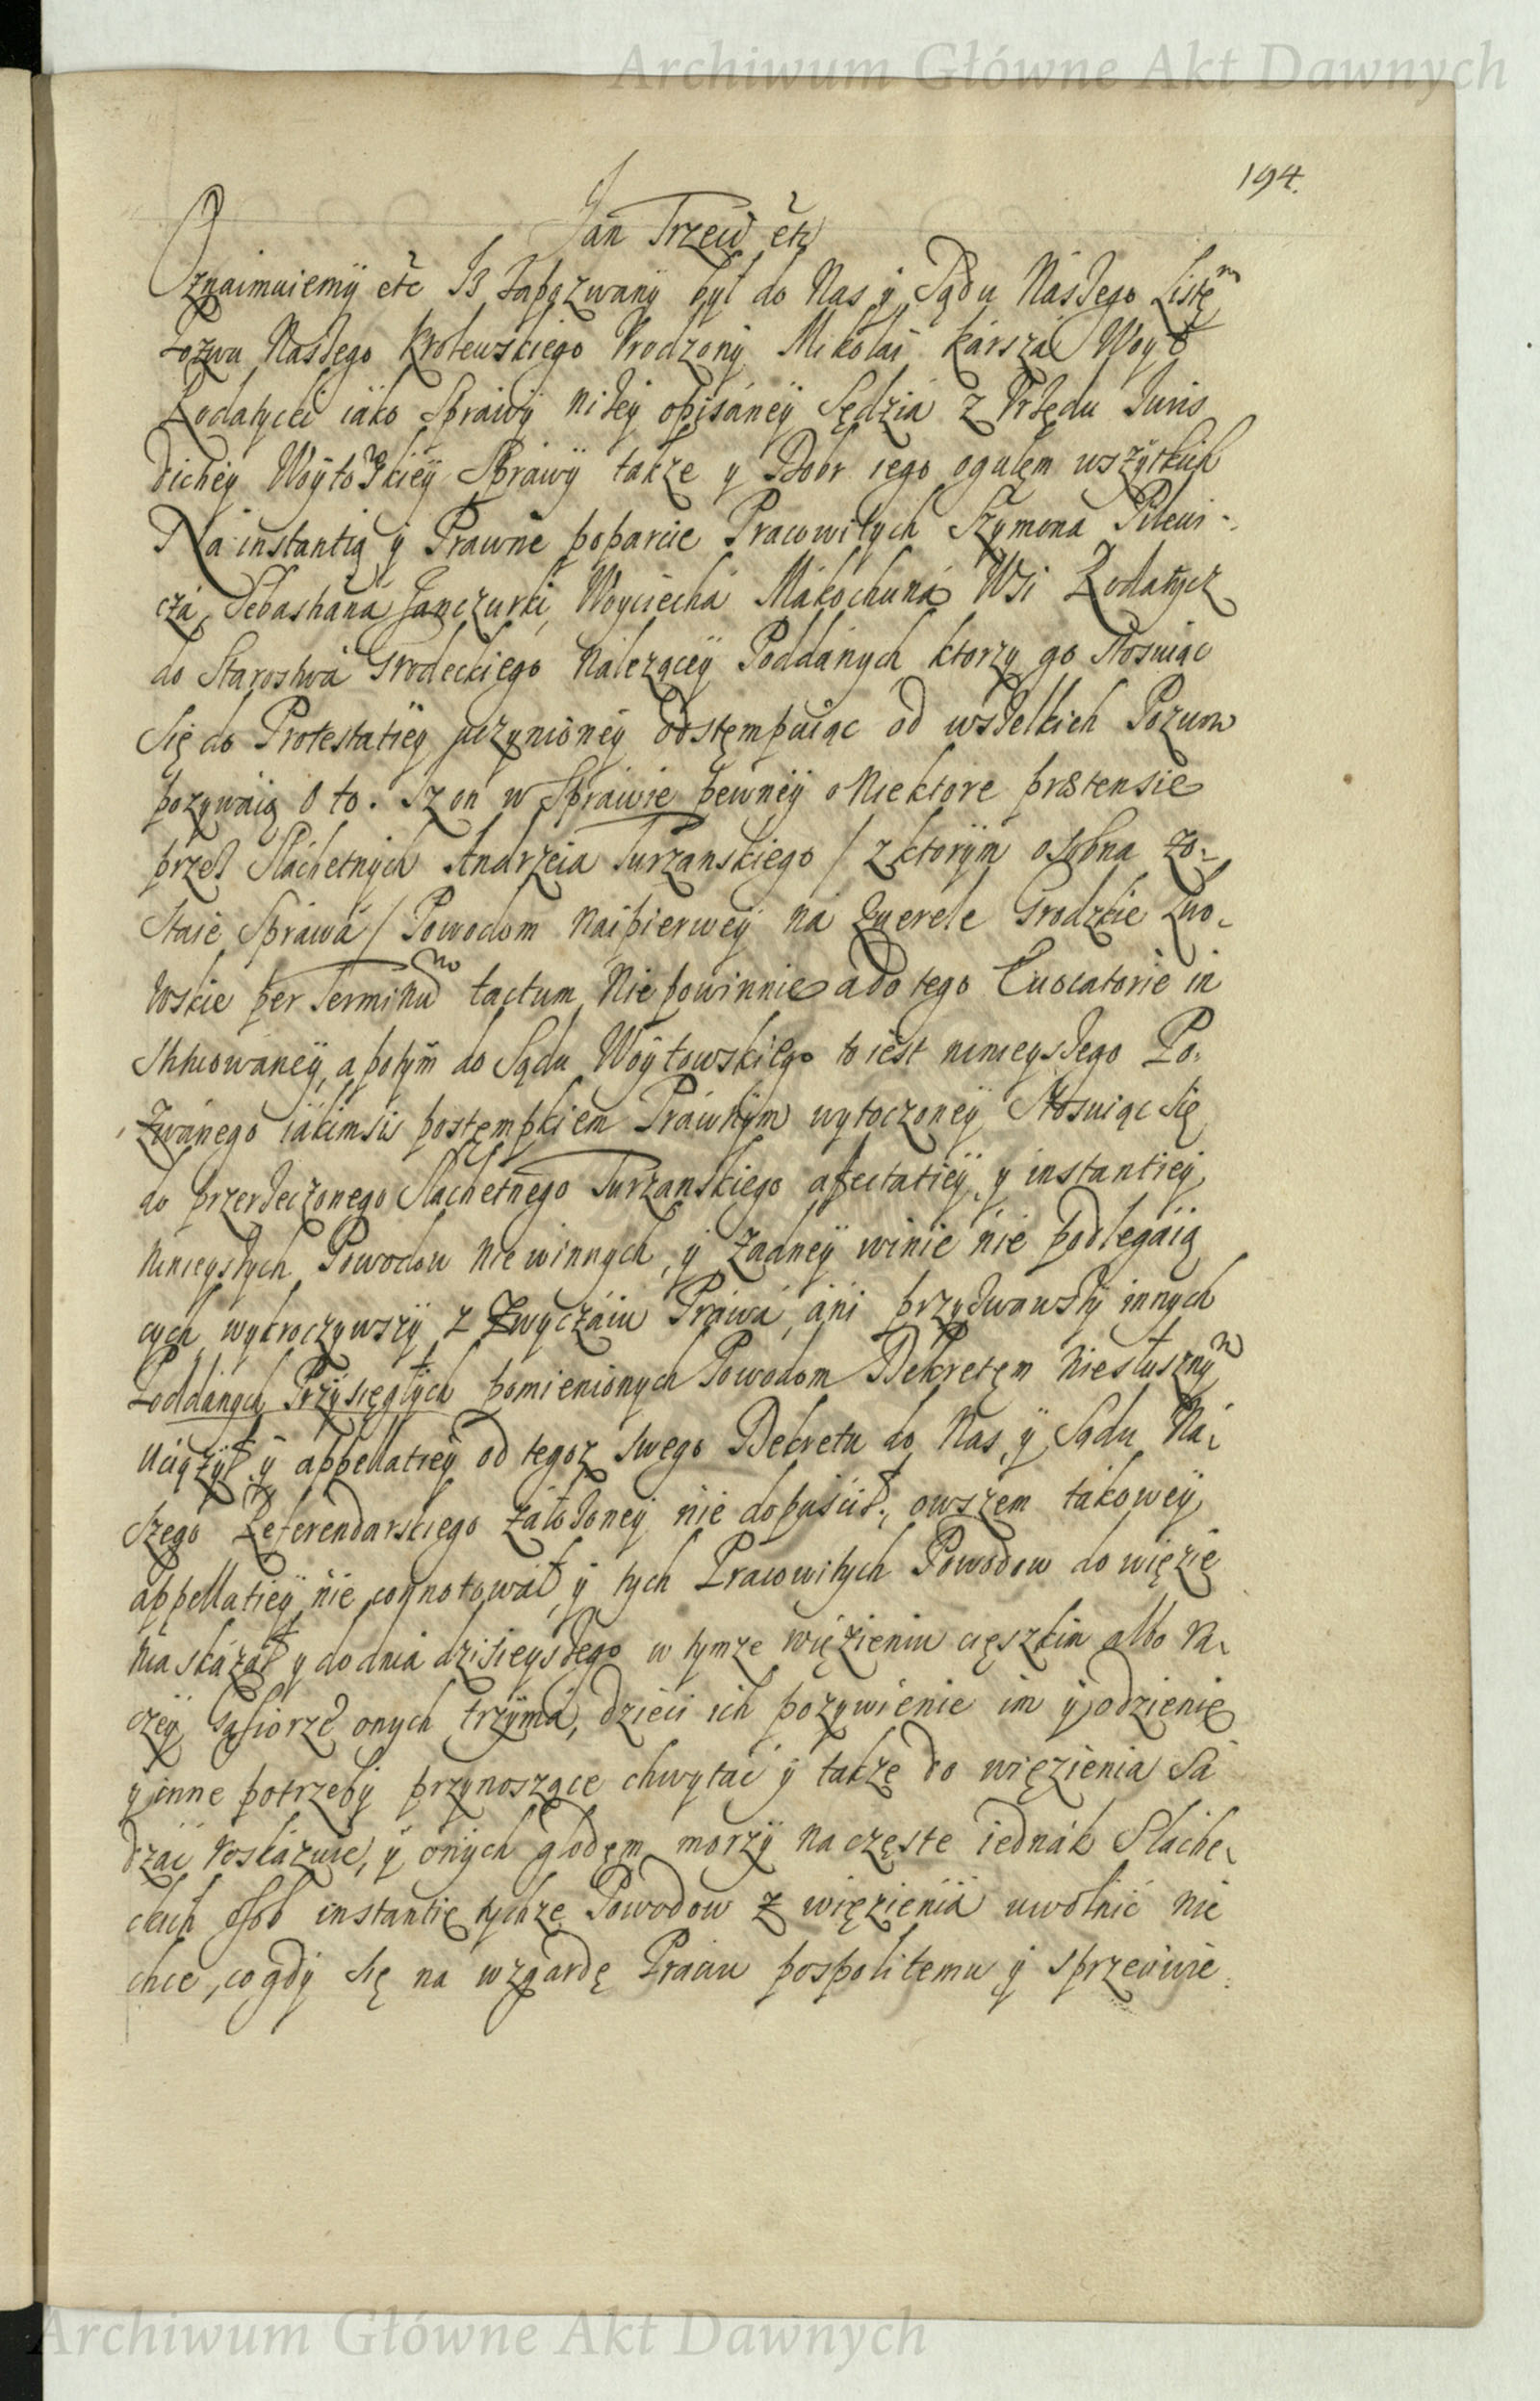 Archiwum Główne Akt Dawnych
194.
Jan Trzeci etc
Oznaimuiemy etc Iż Zapozwany był do Nas y Sądu Naszego Listem
Pozwu Naszego Krolewskiego Vrodzony Mikołai Karsza Woyt
Rodatycki iako Sprawy niżey opisaney Sędzia z Vrzędu Juris
dictiey Woytowskiey Sprawy także y Dobr iego ogułem wszytkich
Na instantią y Prawne poparcie Pracowitych Szymona Pilewi-
cza, Sebastiana Janczurki, Woyciecha Makochuna Wsi Rodatycz
do Starostwa Grodeckiego Należącey Poddanych ktorzy go stosuiąc
się do Protestatiey uczynioney odstępuiąc od wszelkich Pozwow
pozywaią o to. Iz on w Sprawie pewney o Niektore praetensie
przez Slachetnych Andrzeia Turzanskiego / z ktorym osobna zo-
staie Sprawa / Powodom naipierwey na Querele Grodzkie Lwo-
wskie per Terminum tactum Niepowinnie a do tego Evocatorie in
stituowaney, a potym do Sądu Woytowskiego to iest ninieyszego Po-
zwanego iakimsi postempkiem Prawnym wytoczoney stosuiąc się
do przerzeczonego Slachetnego Turzanskiego afectatiey y instantiey
ninieyszych Powodow niewinnych, y Żadney winie nie podlegaią
cych, wykroczywszy z Zwyczaiu Prawa, ani przyzwawszy innych
Poddanych Przysięgłych pomienionych Powodom Dekretem niesłusznym
uciążył y appellatiey od tegoz swego Dekretu do Nas, y Sądu Na-
szego Referendarskiego założoney nie dopuścił, owszem takowey
appellatiey nie connotował, y tych Pracowitych Powodow do więzie
nia skazał y do dnia dzisieyszego w tymże więzieniu cięszkim albo ra-
czey gąsiorze onych trzyma, dzieci ich pożywienie im y odzienie
y inne potrzeby przynoszące chwytać y także do więzienia sa
dzać roskazuie, y onych głodem morzy na częste iednak Slache-
ckich osob instantie tychże Powodow z więzienia uwolnić nie
chce, co gdy się na wzgardę Prawu pospolitemu y sprzeciwie
Archiwum Główne Akt Dawnych